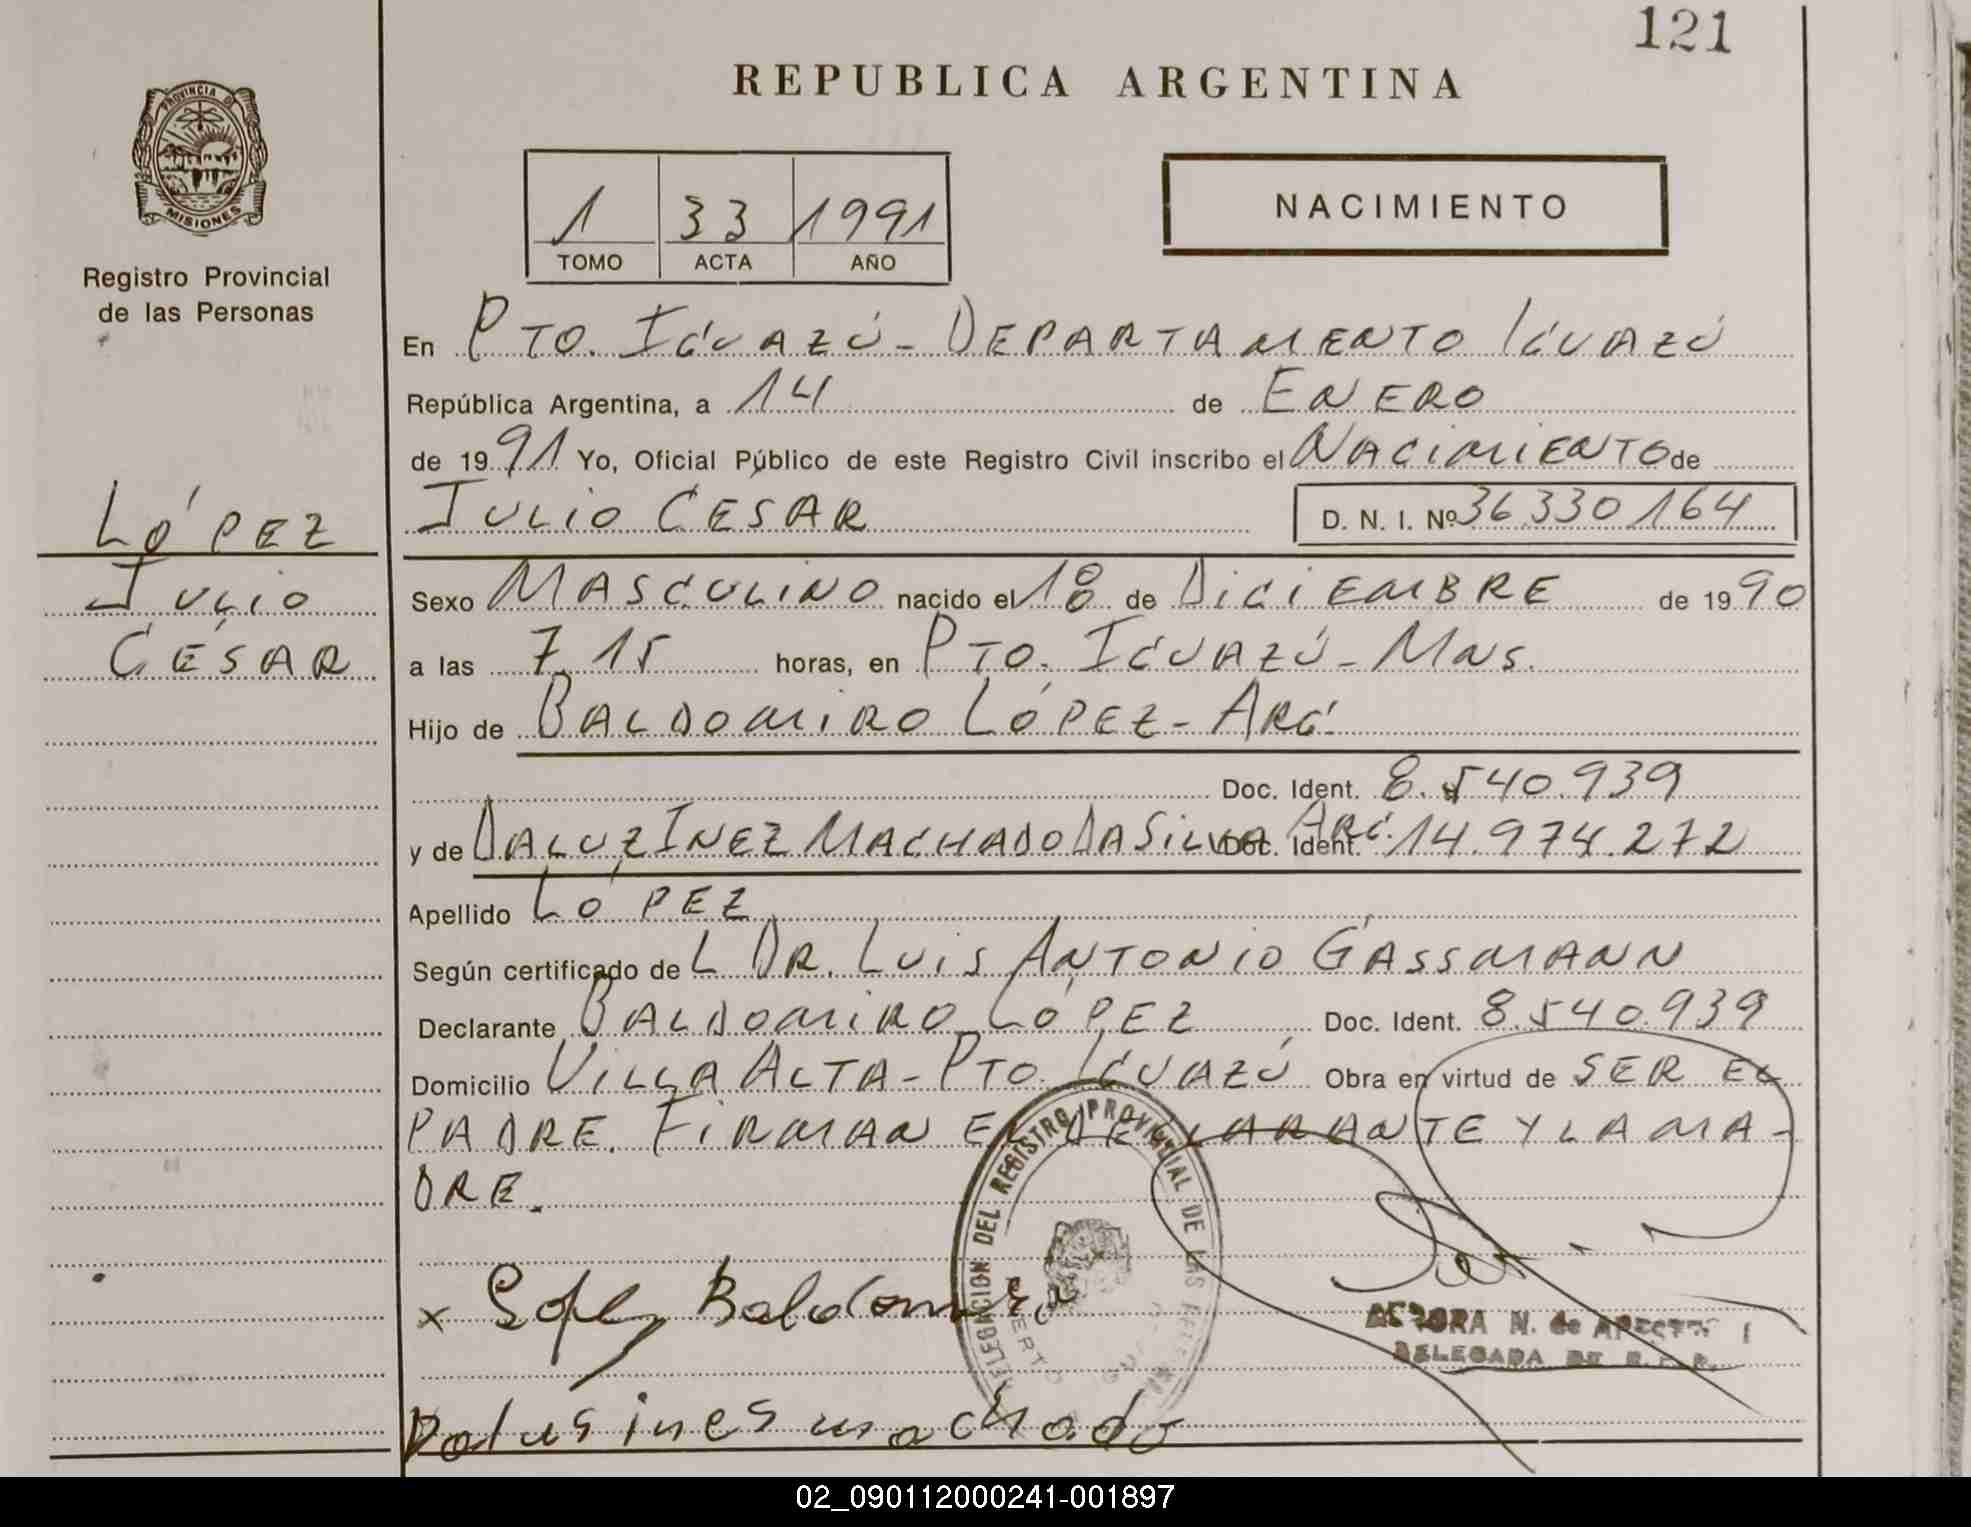 121
REPUBLICA ARGENTINA
PROVINCIA DE
MISIONES
Registro Provincial
de las Personas
1 33 1991
TOMO ACTA AÑO
NACIMIENTO
En PTO. IGUAZÚ - DEPARTAMENTO IGUAZÚ
República Argentina, a 14 de ENERO
de 1991 Yo, Oficial Público de este Registro Civil inscribo el NACIMIENTO de
JULIO CESAR D. N. I. Nº 36.330.164
LÓPEZ
JULIO
CÉSAR
Sexo MASCULINO nacido el 18 de DICIEMBRE de 1990
a las 7.15 horas, en PTO. IGUAZÚ - MNS.
Hijo de BALDOMIRO LÓPEZ - ARG.
Doc. Ident. 8.540.939
y de DALUZ INEZ MACHADO DA SILVA ARG. Doc. Ident. 14.974.272
Apellido LÓPEZ
Según certificado del DR. LUIS ANTONIO GASSMANN
Declarante BALDOMIRO LÓPEZ Doc. Ident. 8.540.939
Domicilio VILLA ALTA - PTO. IGUAZÚ Obra en virtud de SER EL
PADRE. FIRMAN EL DECLARANTE Y LA MA-
DRE.
DELEGACION DEL REGISTRO PROVINCIAL DE LAS
x Lopez Baldomiro
N. de
DELEGADA
Dalus ines machado
02_090112000241-001897